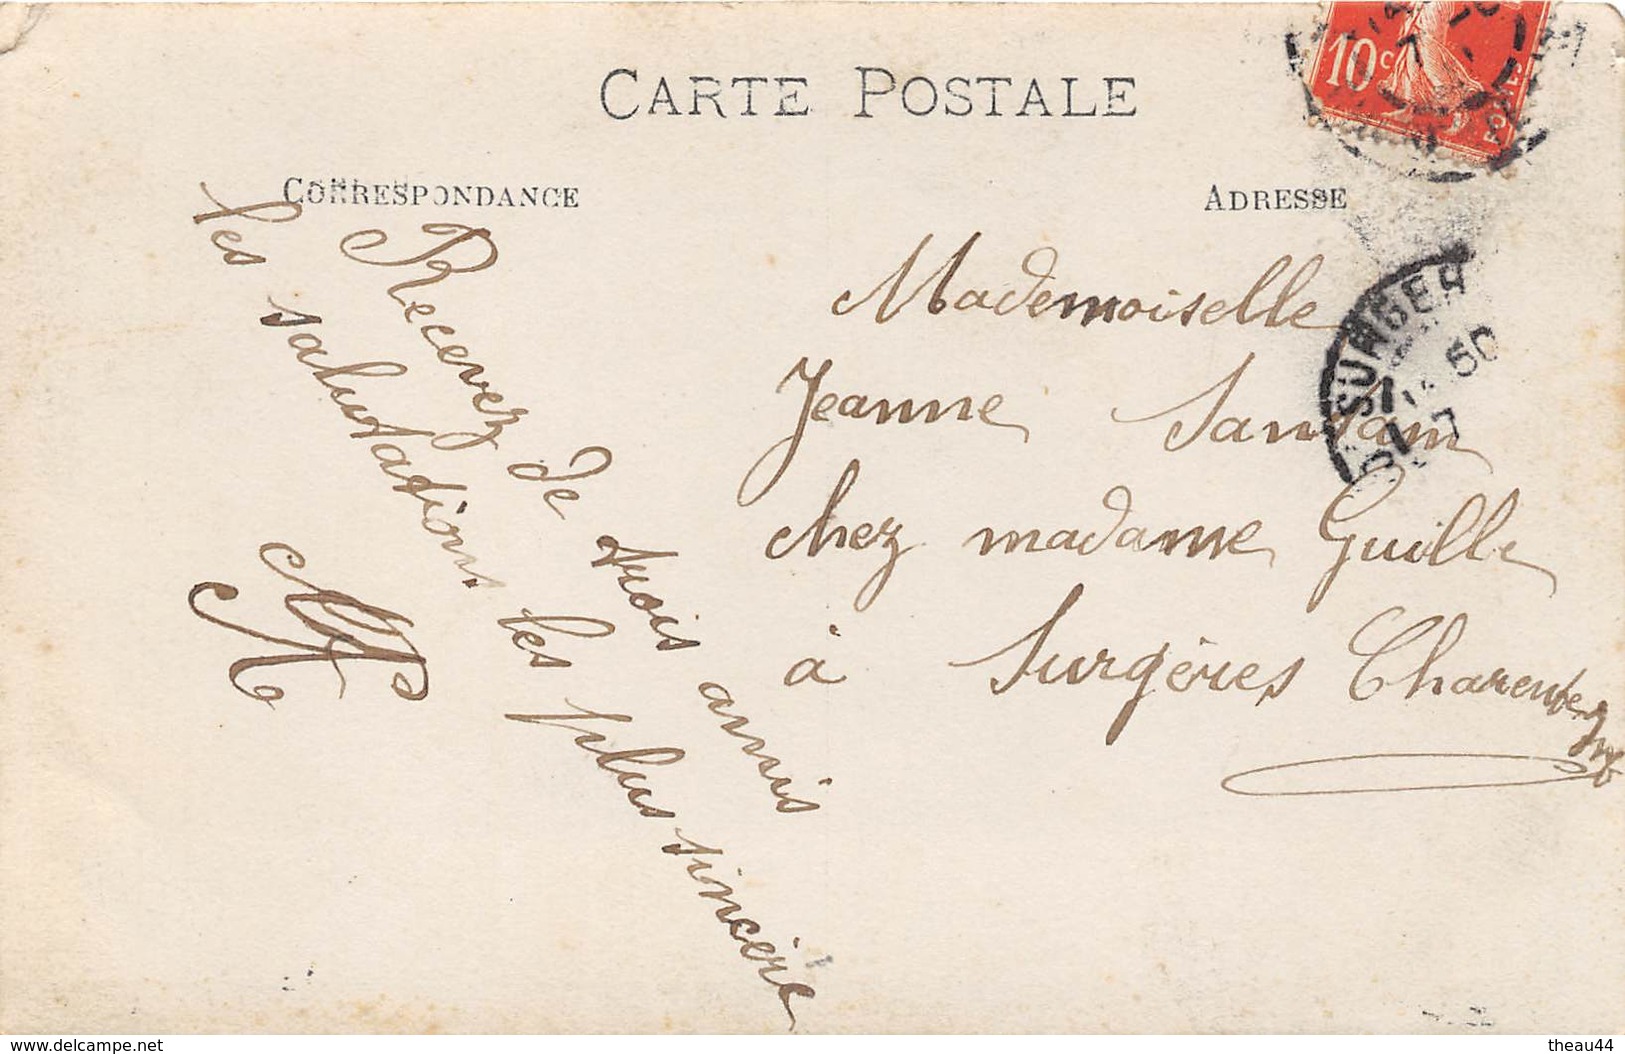 CARTE POSTALE
CORRESPONDANCE
ADRESSE
10c
POSTES
SURGER
50
7
Recevez de trois amis
les salutations les plus sincere
Mademoiselle
Jeanne
chez madame Guille
à Surgères Charente
delcampe.net
theau44